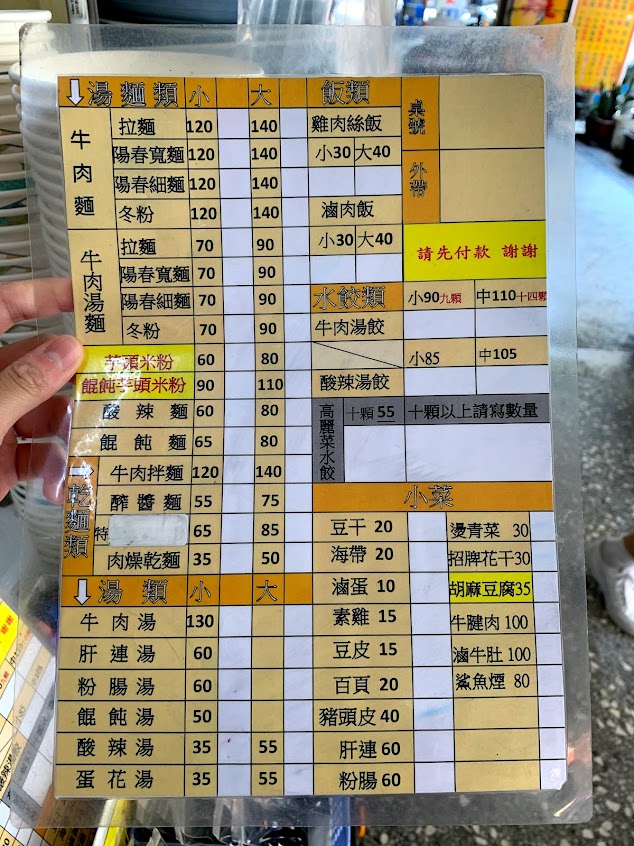 湯麵類 小 大
牛肉麵
拉麵 120 140
陽春寬麵 120 140
陽春細麵 120 140
冬粉 120 140
牛肉湯麵
拉麵 70 90
陽春寬麵 70 90
陽春細麵 70 90
冬粉 70 90
芋頭米粉 60 80
餛飩芋頭米粉 90 110
酸辣麵 60 80
餛飩麵 65 80
乾麵類
牛肉拌麵 120 140
醡醬麵 55 75
特 65 85
肉燥乾麵 35 50
湯類 小 大
牛肉湯 130
肝連湯 60
粉腸湯 60
餛飩湯 50
酸辣湯 35 55
蛋花湯 35 55
飯類
雞肉絲飯
小30 大40
滷肉飯
小30 大40
桌號
外帶
請先付款 謝謝
水餃類 小90九顆 中110十四顆
牛肉湯餃
小85 中105
酸辣湯餃
高麗菜水餃
十顆 55 十顆以上請寫數量
小菜
豆干 20
海帶 20
滷蛋 10
素雞 15
豆皮 15
百頁 20
豬頭皮 40
肝連 60
粉腸 60
燙青菜 30
招牌花干30
胡麻豆腐35
牛腱肉 100
滷牛肚 100
鯊魚煙 80